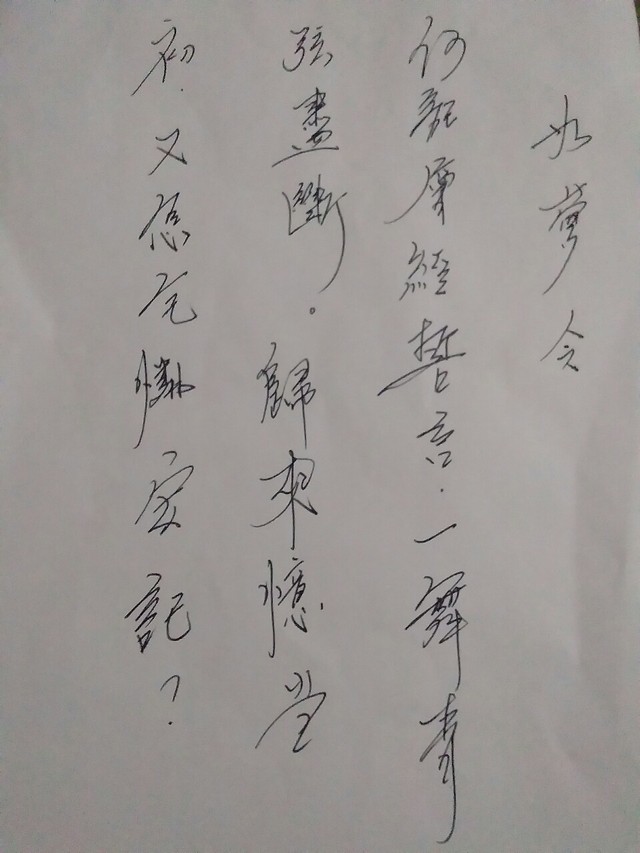 如夢令
何經誓言.一舞青
弦盡斷。歸來憶當
初.又怎乞憐記?